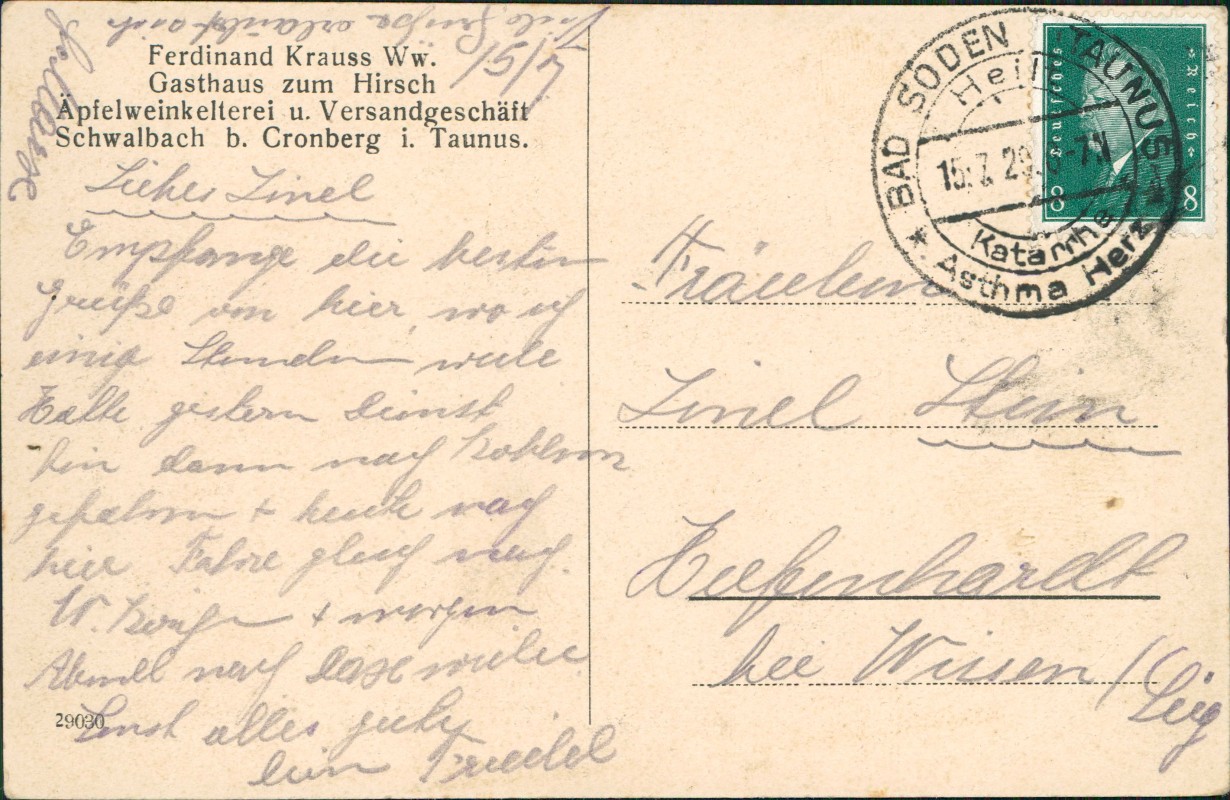 Ferdinand Krauss Ww.
Gasthaus zum Hirsch
Äpfelweinkelterei u. Versandgeschäft
Schwalbach b. Cronberg i. Taunus.
Liebes Linel
Empfange die besten
Grüße von hier, wo ich
einige Stunden weile
Hatte gestern Dienst
bin dann nach Koblenz
gefahren + heute nach
hier Fahre gleich nach
+ morgen
Abend nach wieder
Sonst alles gute
Dein Friedel
29030
Viele Grüße
BAD SODEN TAUNUS
Heilt
15.7.29
Katarrhe
Asthma Herz
Deutsches Reich
8 8
Fräulein
Linel Stein
Hiefenhardt
bei Wissen / Sieg